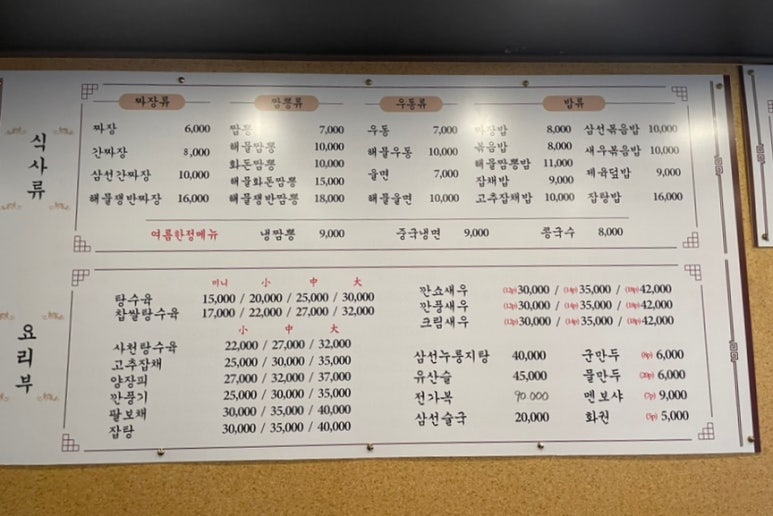 식사류
짜장류
짜장 6,000
간짜장 8,000
삼선간짜장 10,000
해물쟁반짜장 16,000
짬뽕류
짬뽕 7,000
해물짬뽕 10,000
화돈짬뽕 10,000
해물화돈짬뽕 15,000
해물쟁반짬뽕 18,000
우동류
우동 7,000
해물우동 10,000
울면 7,000
해물울면 10,000
밥류
짜장밥 8,000
볶음밥 8,000
해물짬뽕밥 11,000
잡채밥 9,000
고추잡채밥 10,000
삼선볶음밥 10,000
새우볶음밥 10,000
제육덮밥 9,000
잡탕밥 16,000
여름한정메뉴 냉짬뽕 9,000 중국냉면 9,000 콩국수 8,000
요리부
미니 小 中 大
탕수육 15,000 / 20,000 / 25,000 / 30,000
찹쌀탕수육 17,000 / 22,000 / 27,000 / 32,000
小 中 大
사천탕수육 22,000 / 27,000 / 32,000
고추잡채 25,000 / 30,000 / 35,000
양장피 27,000 / 32,000 / 37,000
깐풍기 25,000 / 30,000 / 35,000
팔보채 30,000 / 35,000 / 40,000
잡탕 30,000 / 35,000 / 40,000
깐쇼새우 (12p)30,000 / (14p)35,000 / (18p)42,000
깐풍새우 (12p)30,000 / (14p)35,000 / (18p)42,000
크림새우 (12p)30,000 / (14p)35,000 / (18p)42,000
삼선누룽지탕 40,000
유산슬 45,000
전가복 90.000
삼선술국 20,000
군만두 (8p) 6,000
물만두 (20p) 6,000
멘보샤 (7p) 9,000
화권 (5p) 5,000